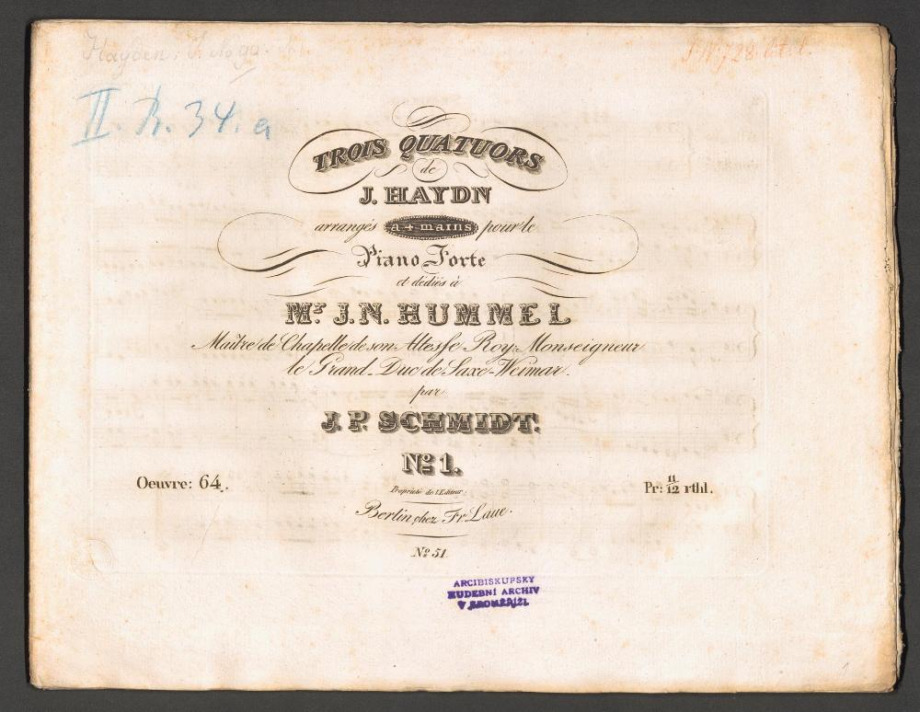 II. R. 34. a
TROIS QUATUORS
de
J. HAYDN
arrangés à 4 mains pour le
Piano Forte
et dédiés à
Mr. J. N. HUMMEL
Maître de Chapelle de son Altesse Roy. Monseigneur
le Grand Duc de Saxe-Weimar.
par
J. P. SCHMIDT.
No. 1.
Oeuvre: 64.
Pr: 11/12 rthl.
Propriété de l'Editeur.
Berlin, chez Fr. Laue.
No. 51
ARCIBISKUPSKÝ
HUDEBNÍ ARCHIV
V KROMĚŘÍŽI